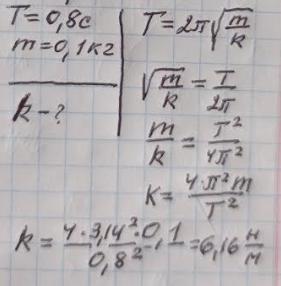 T=0,8с
m=0,1кг
k-?
T=2π√(m/k)
√(m/k)=T/2π
m/k=T²/4π²
K=4·π²m/T²
k=4·3,14²·0,1/0,8²=6,16 н/м